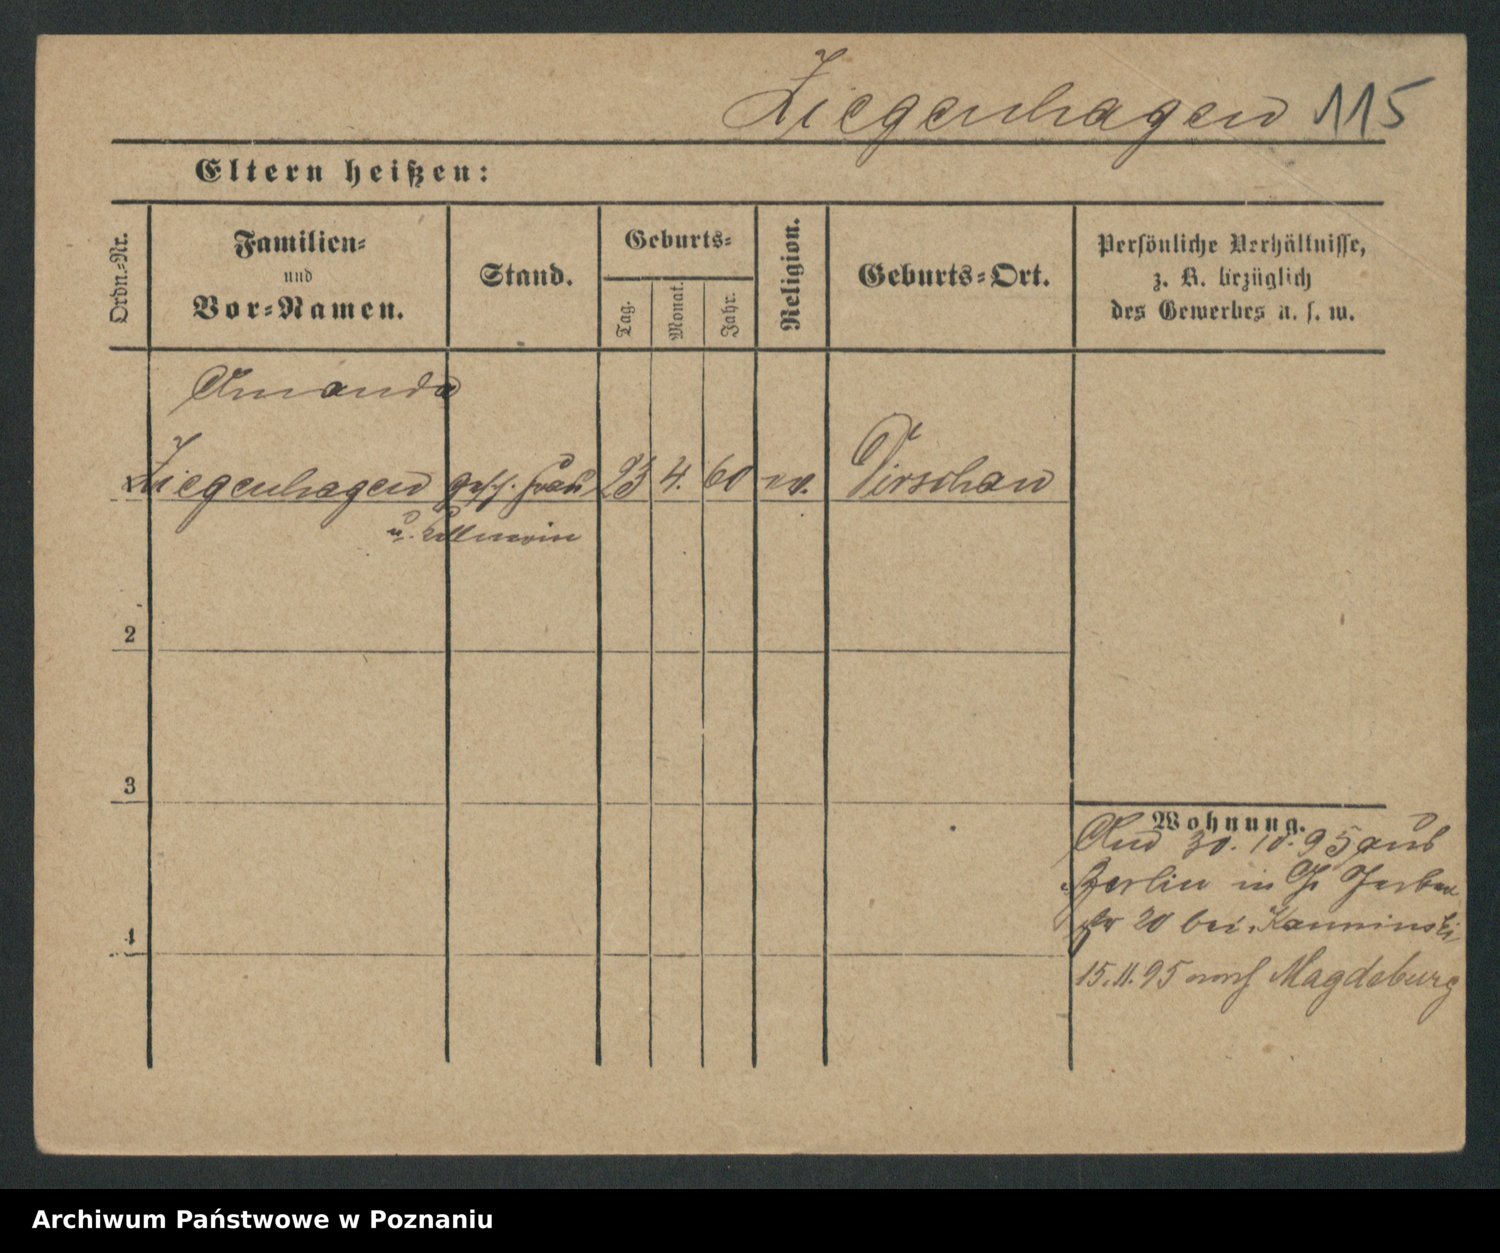 Ziegenhagen 115
Eltern heißen:
Ordn.-Nr.
Familien-
und
Vor-Namen.
Stand.
Geburts-
Tag.
Monat.
Jahr.
Religion.
Geburts-Ort.
Persönliche Verhältnisse,
z. B. bezüglich
des Gewerbes u. s. w.
Amanda
Ziegenhagen gesch. Frau 23 4. 60 ev. Dirschau
u. Kellnerin
2
3
4
Wohnung.
And 30. 10. 95 aus
Berlin in Gr Gerber
str 20 bei Kaminski
15.11.95 nach Magdeburg
Archiwum Państwowe w Poznaniu